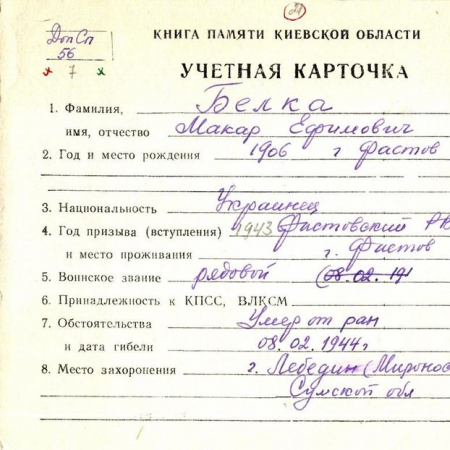 21
КНИГА ПАМЯТИ КИЕВСКОЙ ОБЛАСТИ
Доп Сп
56
х 7 х
УЧЕТНАЯ КАРТОЧКА
1. Фамилия, Белка
имя, отчество Макар Ефимович
2. Год и место рождения 1906 г Фастов
3. Национальность Украинец
4. Год призыва (вступления) 1943 Фастовский РВ
и место проживания г. Фастов
5. Воинское звание рядовой (08.02.191
6. Принадлежность к КПСС, ВЛКСМ
7. Обстоятельства Умер от ран
и дата гибели 08.02.1944г
8. Место захоронения г. Лебедин (Миронос
Сумской обл